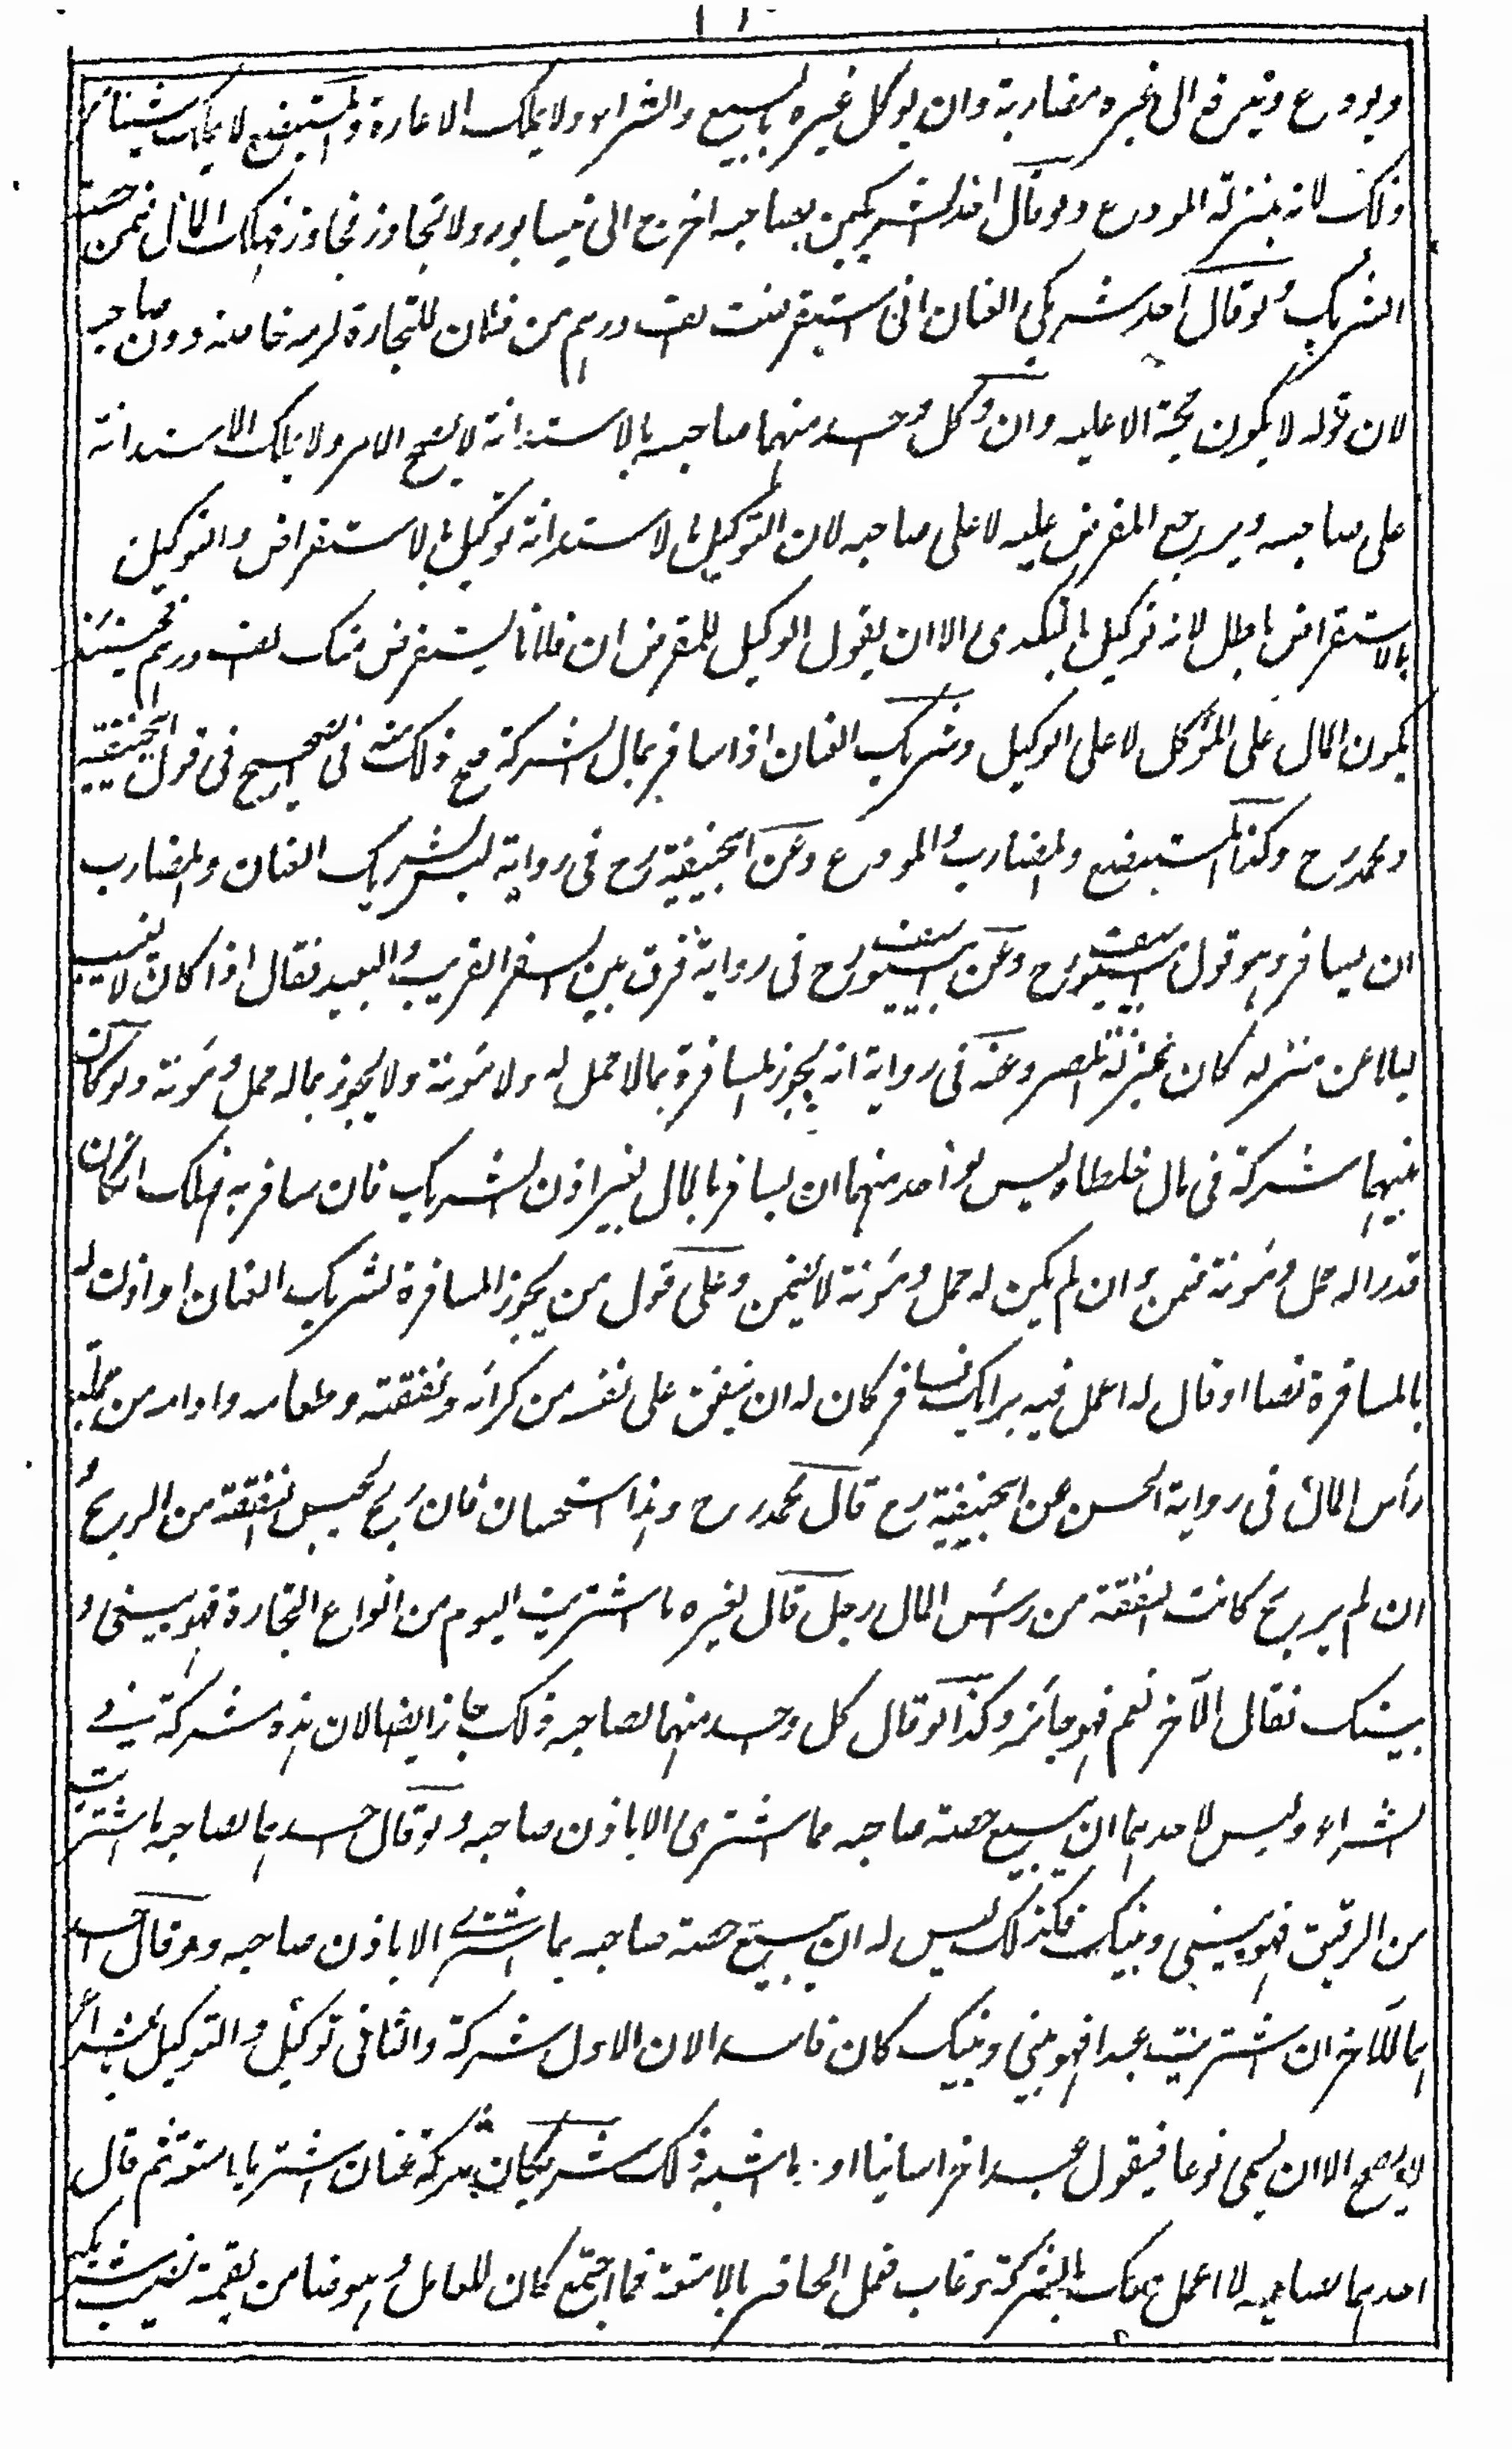 ويودع ويدفع الى غيره مضاربة وان يوكل غيره بالبيع والشراء ولا يملك الاعارة والمستبضع لا يملك شيئا من
ذلك لانه بمنزلة المودع ولو قال احد الشريكين لصاحبه اخرج الى نيسابور ولا تجاوز فجاوز فهلك المال ضمن حصة
الشريك ولو قال احد شريكي العنان اني استقرضت الف درهم من فلان للتجارة لزمه خاصة دون صاحبه
لان قوله لا يكون حجة الا عليه وان وكل واحد منهما صاحبه بالاستدانة لا يصح الامر ولا يملك الاستدانة
على صاحبه ويرجع المقرض عليه لا على صاحبه لان التوكيل بالاستدانة توكيل بالاستقراض والتوكيل
بالاستقراض باطل لانه توكيل بالتكدي الا ان يقول الوكيل للمقرض ان فلانا يستقرض منك الف درهم فحينئذ
يكون المال على المؤكل لا على الوكيل وشريك العنان اذا سافر بمال الشركة صح ذلك منه في الصحيح في قول ابيحنيفة
ومحمد رح وكذا المستبضع والمضارب والمودع وعن ابيحنيفة رح في رواية ليس لشريك العنان والمضارب
ان يسافر وهو قول ابييوسف رح وعن ابييوسف رح في رواية فرق بين السفر القريب والبعيد فقال اذا كان لا يغيب
ليلا عن منزله كان بمنزلة المصر وعنه في رواية انه يجوز المسافرة بما لا حمل له ولا مؤنة ولا يجوز بما له حمل ومؤنة ولو كان
بينهما شركة في مال خلطا وليس لواحد منهما ان يسافر بالمال بغير اذن الشريك فان سافر به فهلك ان كان
قدرا له حمل ومؤنة ضمن وان لم يكن له حمل ومؤنة لا يضمن وعلى قول من يجوز المسافرة لشريك العنان او اذن له
بالمسافرة نصا او قال له اعمل فيه برايك فسافر كان له ان ينفق على نفسه من كرائه ونفقته وطعامه وادامه من جملة
رأس المال في رواية الحسن عن ابيحنيفة رح قال محمد رح وهذا استحسان فان ربح تحسب النفقة من الربح و
ان لم يربح كانت النفقة من رأس المال رجل قال لغيره ما اشتريت اليوم من انواع التجارة فهو بيني و
بينك فقال الآخر نعم فهو جائز وكذا لو قال كل واحد منهما لصاحبه ذلك جاز ايضا لان هذه شركة في
الشراء وليس لاحدهما ان يبيع حصة صاحبه مما اشترى الا باذن صاحبه ولو قال احدهما لصاحبه ما اشتريت
من الرقيق فهو بيني وبينك فكذلك ليس له ان يبيع حصة صاحبه مما اشترى الا باذن صاحبه ولو قال احد
هما للآخر ان اشتريت عبدا فهو بيني وبينك كان فاسدا لان الاول شركة والثاني توكيل والتوكيل بشراء
لا يصح الا ان يسمى نوعا فيقول عبدا خراسانيا او ما اشبه ذلك شريكان شركة عنان اشتريا امتعة ثم قال
احدهما لصاحبه لا اعمل معك بالشركة وغاب فعمل الحاضر بالامتعة فما اجتمع كان للعامل وهو ضامن لقيمة نصيب شريكه